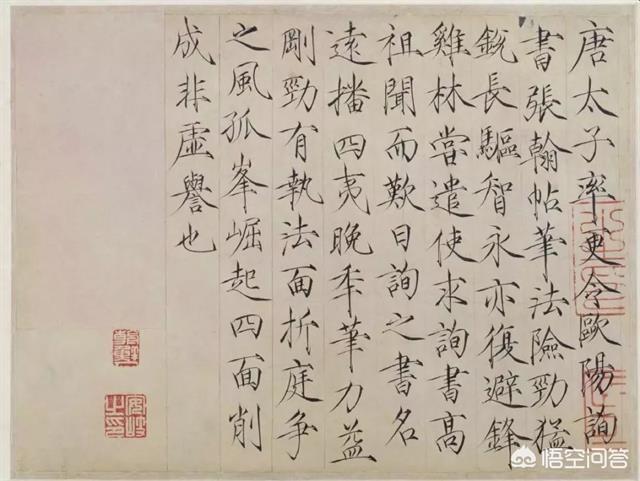 唐太子率更令歐陽詢
書張翰帖筆法險勁猛
銳長驅智永亦復避鋒
雞林嘗遣使求詢書高
祖聞而歎曰詢之書名
遠播四夷晚年筆力益
剛勁有執法面折庭爭
之風孤峯崛起四面削
成非虛譽也
悟空问答